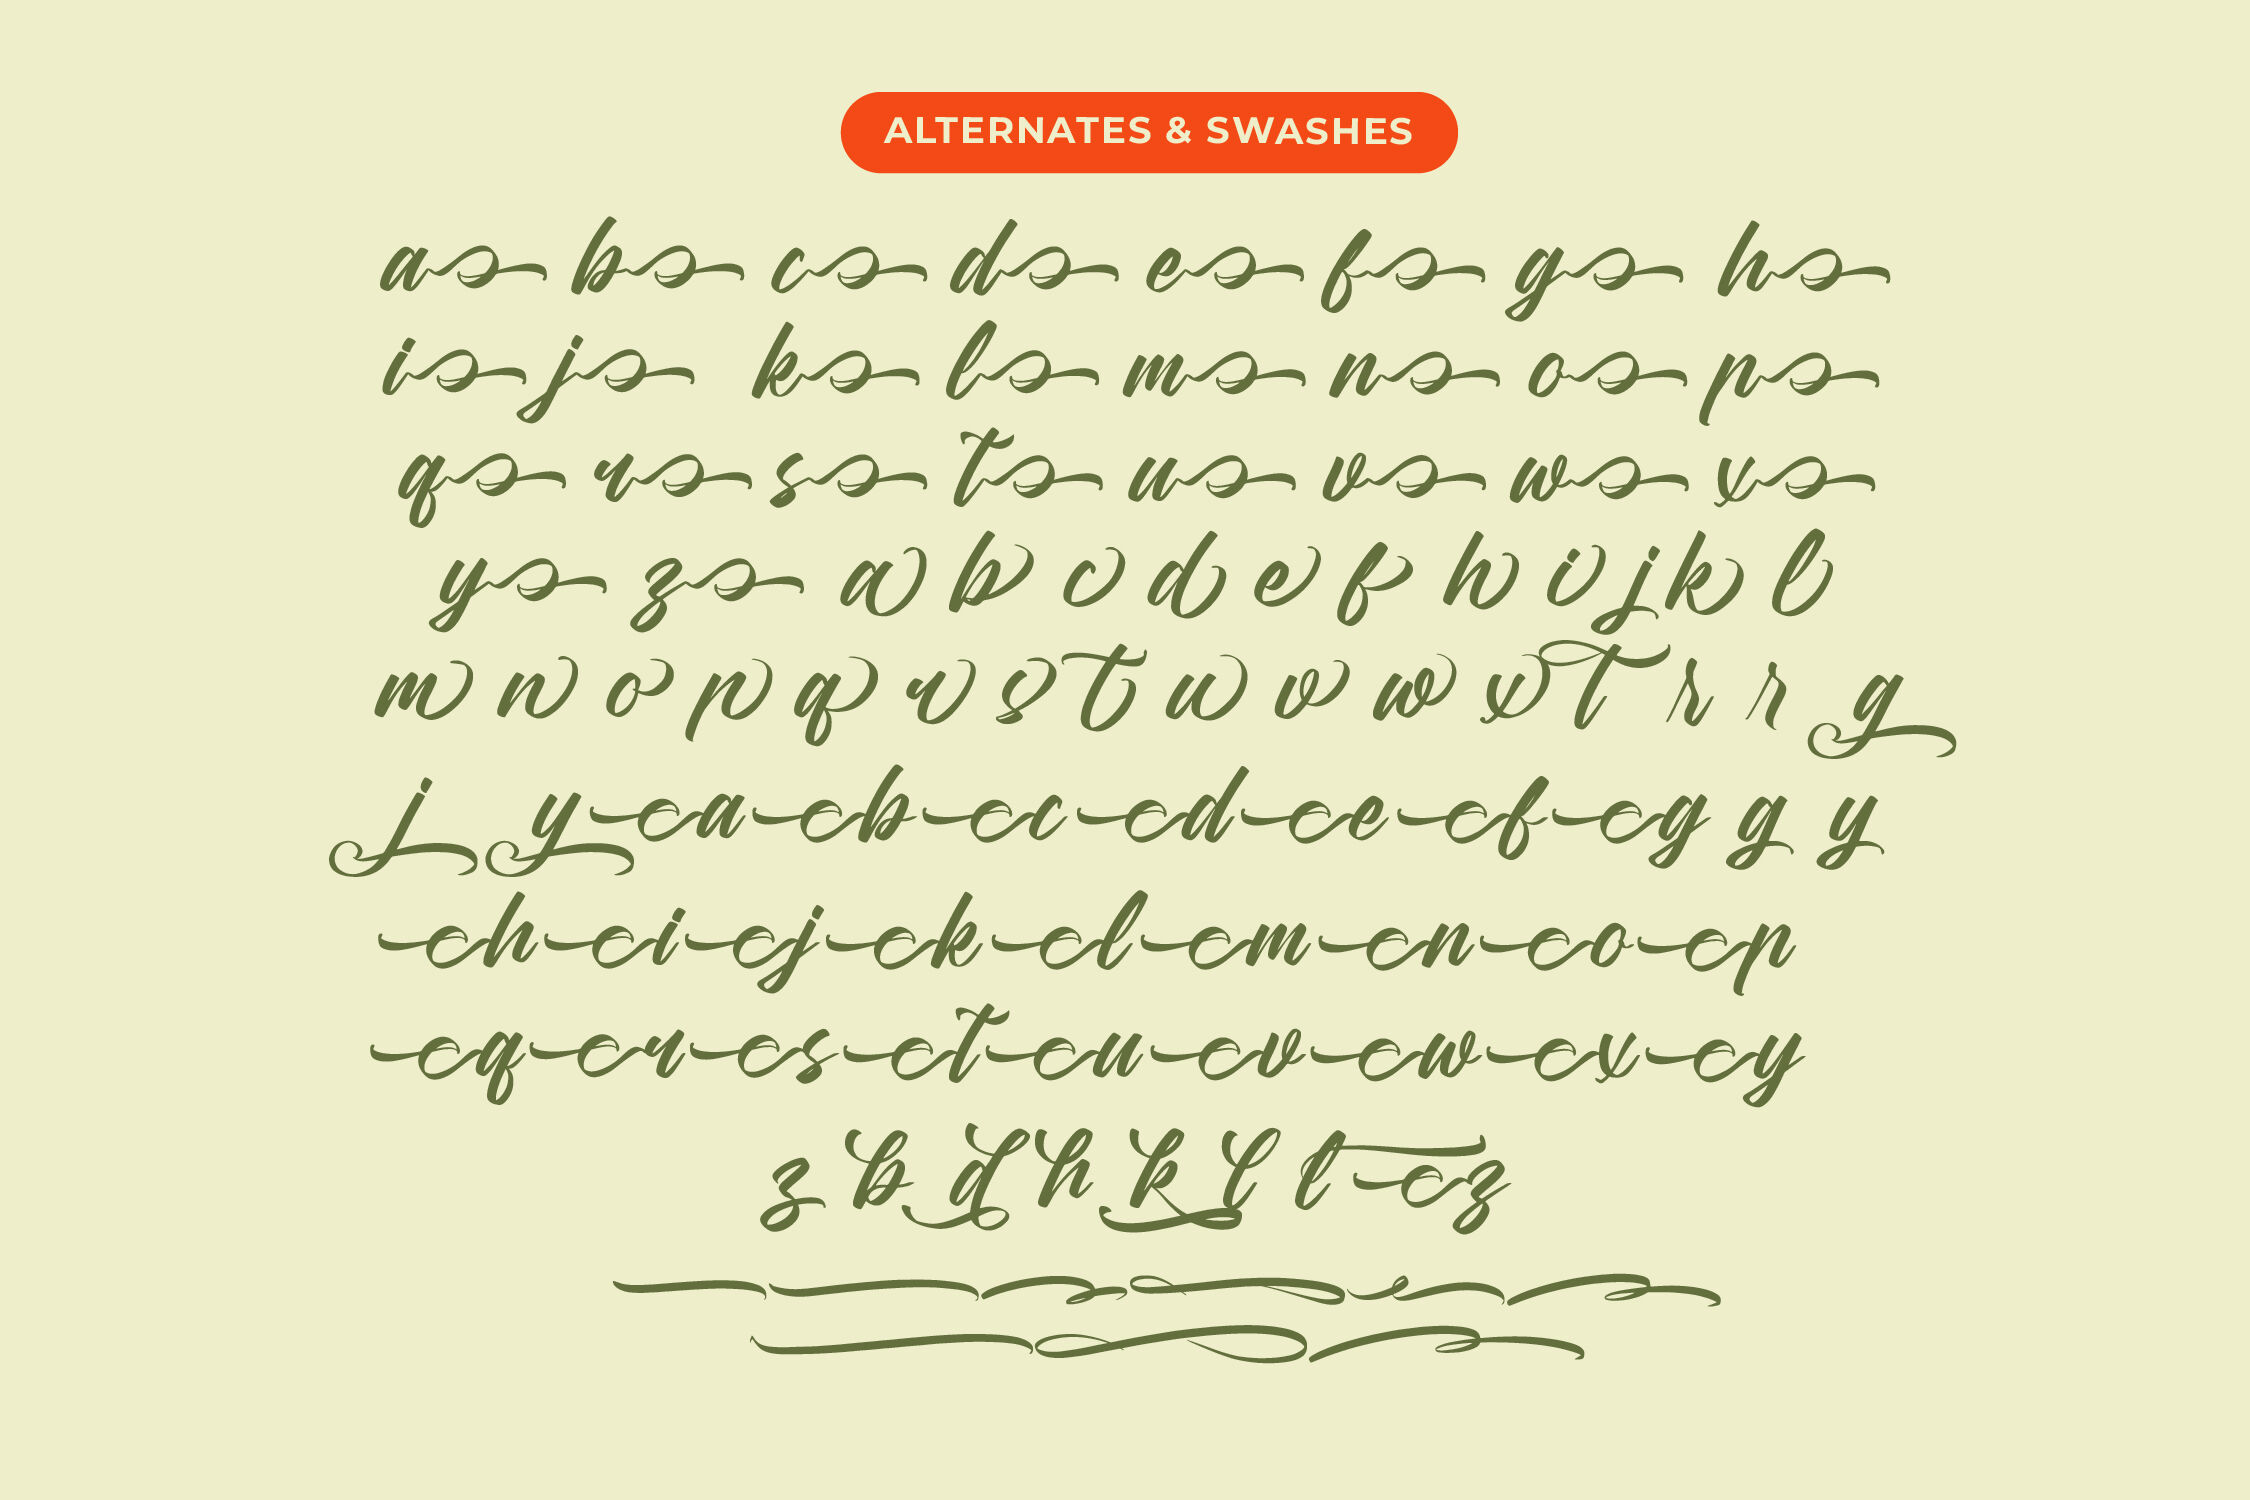 ALTERNATES & SWASHES
a b c d e f g h
i j k l m n o p
q r s t u v w x
y z a b c d e f h i j k l
m n o p q r s t u v w x t r r g
j y a b c d e f g g y
h i j k l m n o p
q r s t u v w x y
z b d h k l t z